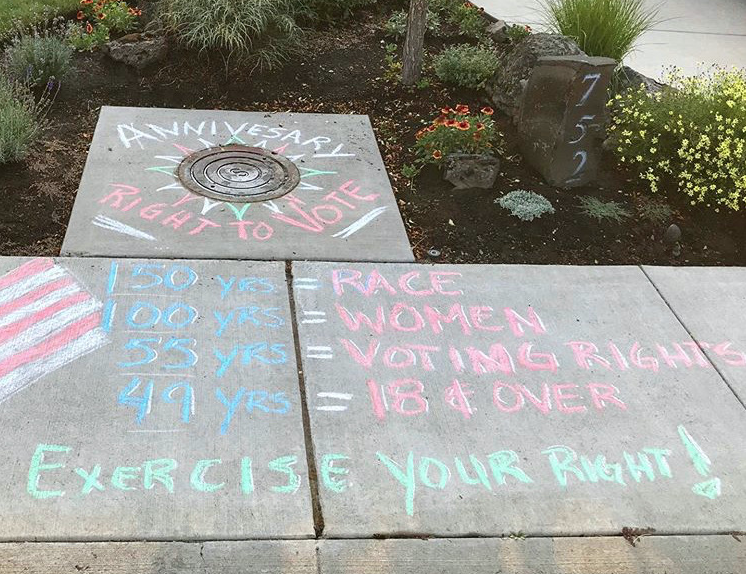 ANNIVESARY
RIGHT TO VOTE
752
150 YRS = RACE
100 YRS = WOMEN
55 YRS = VOTING RIGHTS
49 YRS = 18 & OVER
EXERCISE YOUR RIGHT!